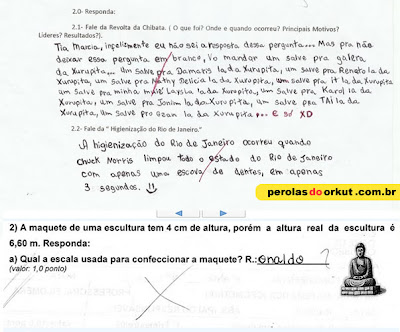 2.0- Responda:
2.1- Fale da Revolta da Chibata. ( O que foi? Onde e quando ocorreu? Principais Motivos?
Líderes? Resultados?).
Tia Marcia, infelismente eu não sei a resposta dessa pergunta... Mas pra não
deixar essa pergunta em branco, Vo mandar um salve pra galera
da Xurupita... um Salve pra Damaris la da Xurupita, um Salve pra Renato la da
Xurupita, um Salve pra Nathy Delicia la da Xurupita, um Salve pra it la da Xurupita
um Salve pra minha mãe Larsia la da Xurupita, um Salve pra Karol la da
Xurupita, um Salve pra Jonim la da Xurupita, um Salve pra TAi la da
Xurupita, um Salve pro Gean la da Xurupita ... E só XD
2.2- Fale da " Higienização do Rio de Janeiro."
A higienização do Rio de Janeiro ocorreu quando
Chuck Norris limpou todo o estado do Rio de Janeiro
com apenas uma escova de dentes, em apenas
3 segundos. !!
perolasdoorkut.com.br
2) A maquete de uma escultura tem 4 cm de altura, porém a altura real da escultura é
6,60 m. Responda:
a) Qual a escala usada para confeccionar a maquete? R.: onaldo ?
(valor: 1,0 ponto)